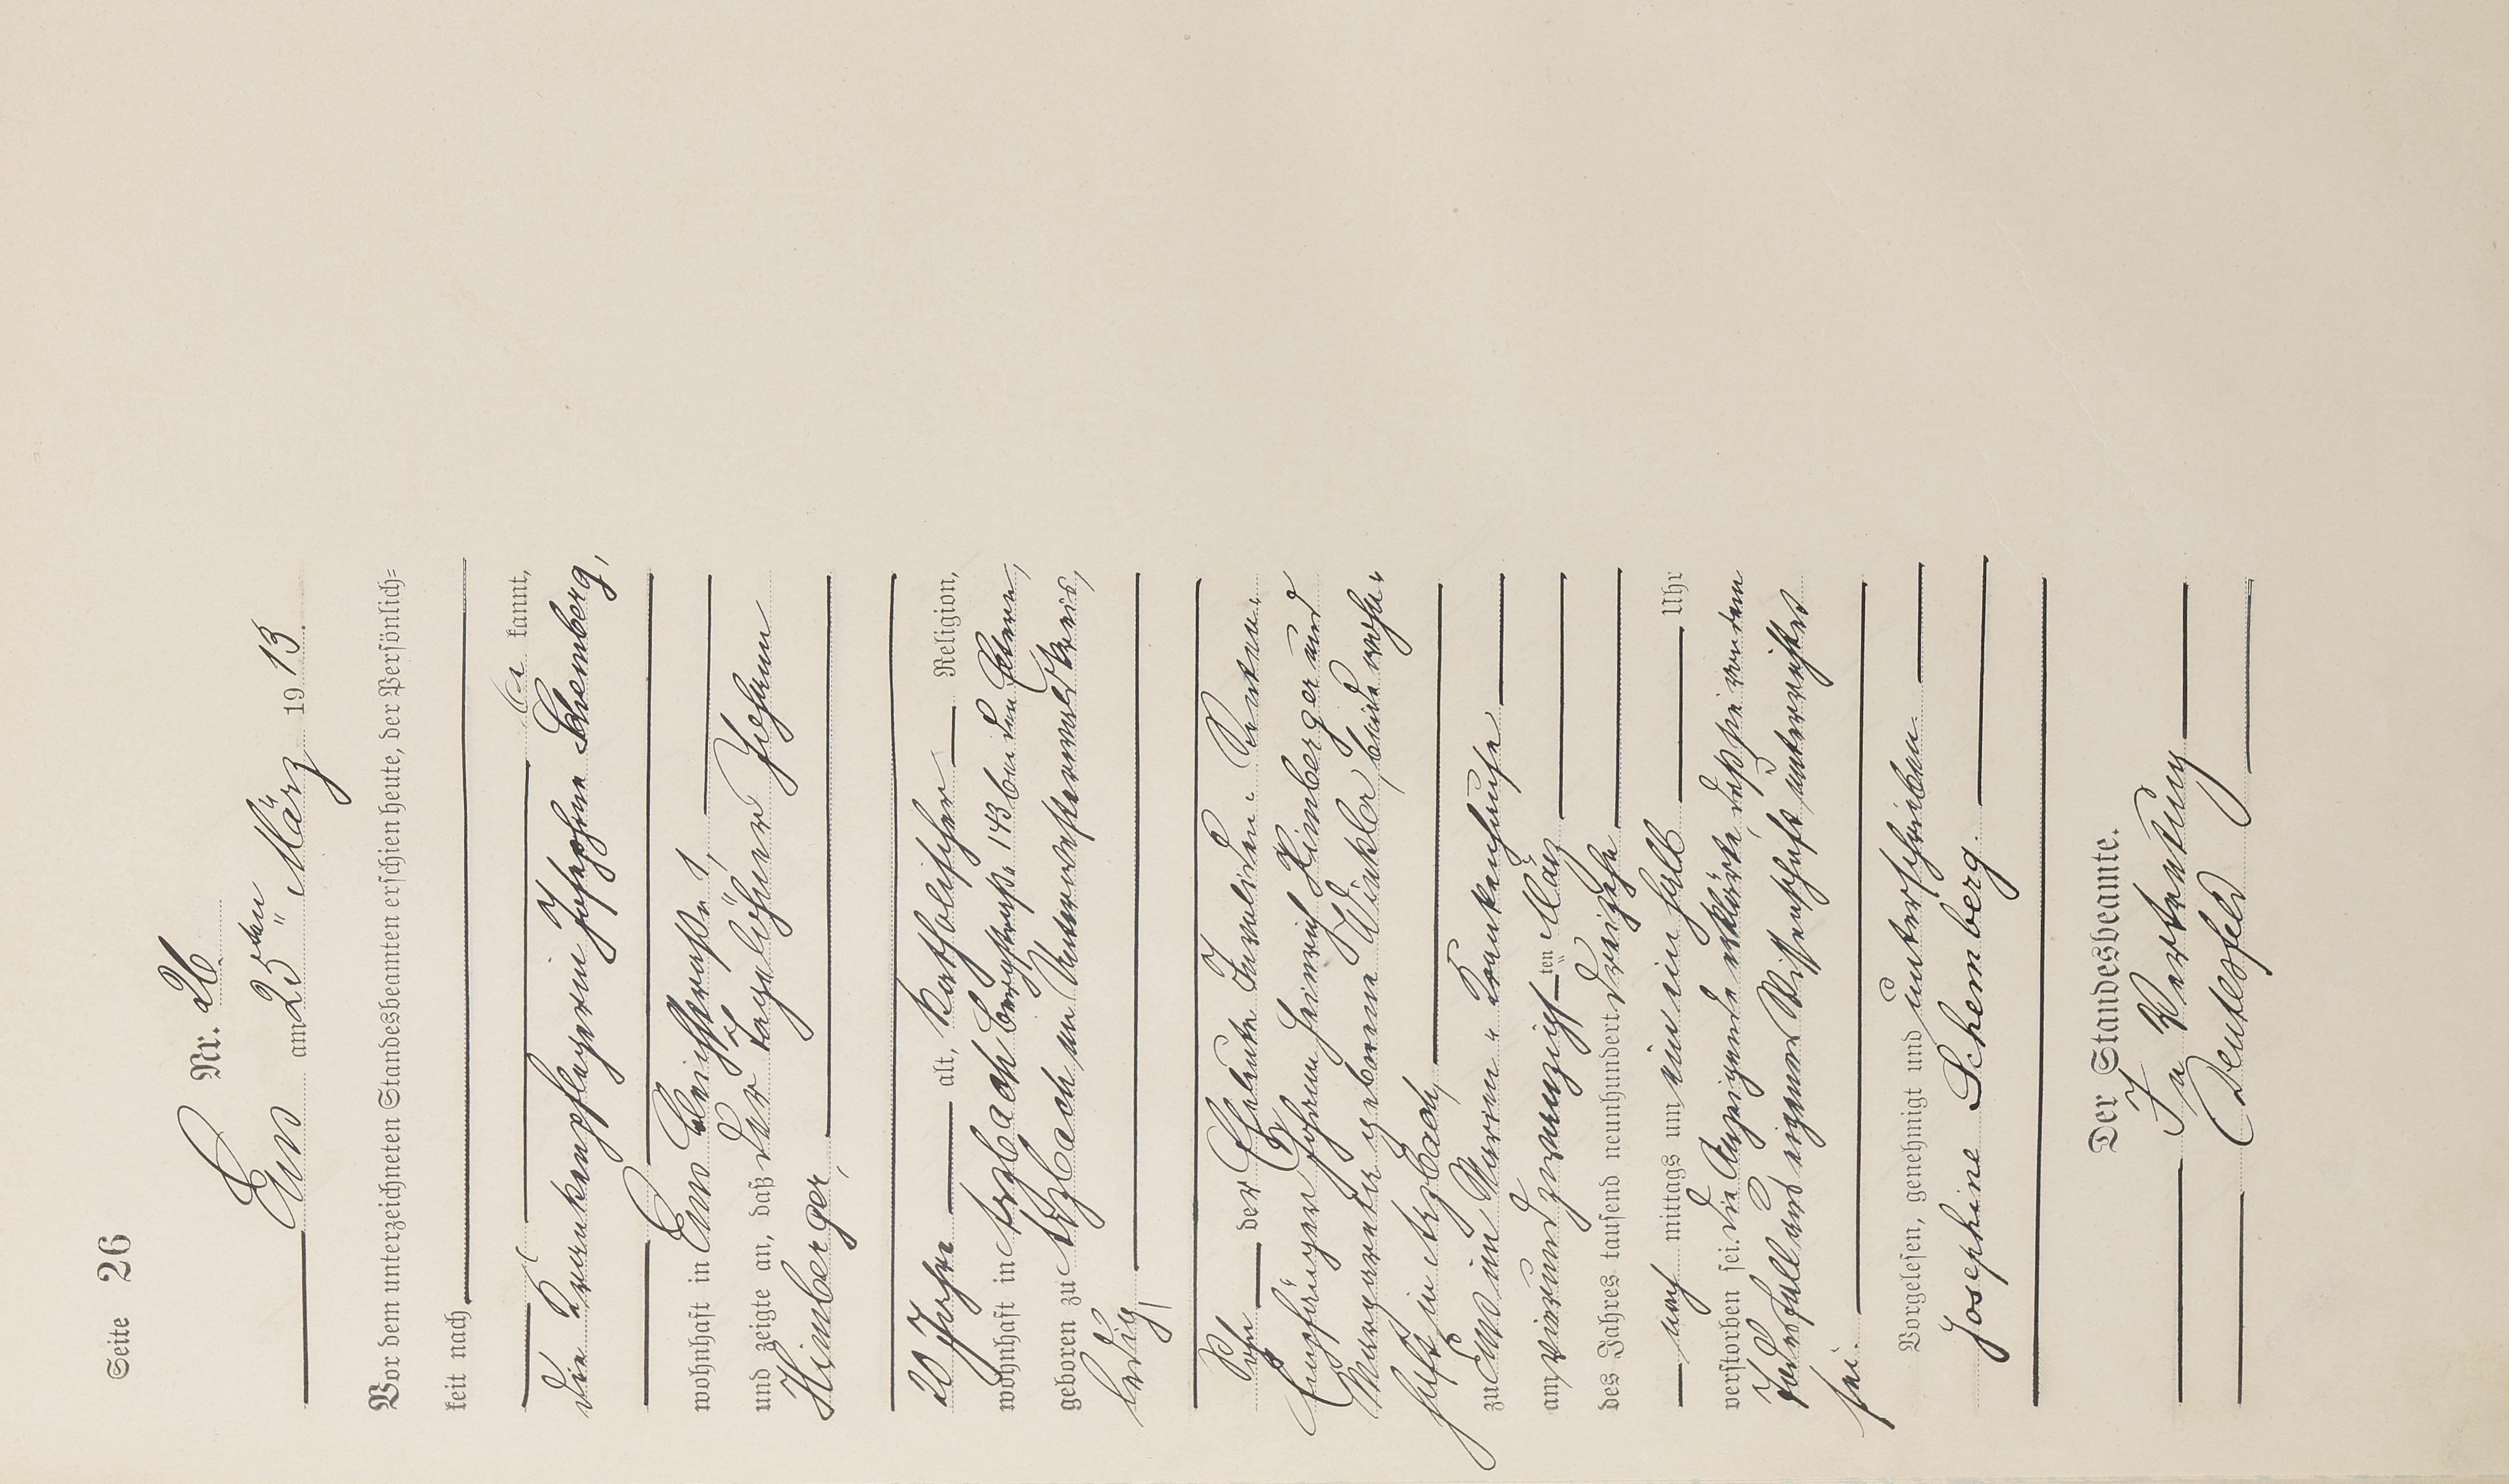 Seite 26
Nr. 26.
Ems am 25ten März 1913.
Vor dem unterzeichneten Standesbeamten erschien heute, der Persönlich=
keit nach
be kannt,
die Krankenpflegerin Josephine Schemberg,
wohnhaft in Ems Bleichstraße 1,
und zeigte an, daß der Tagelöhner Johann
Himberger,
20 Jahre alt, katholischer Religion,
wohnhaft in Arzbach Bergstraße 143 bei den Eltern,
geboren zu Arzbach im Unterwesterwaldkreis,
ledig,
Sohn der Eheleute Invaliden-Renten-
Empfänger Johann Heinrich Himberger und
Margareta geborene Winkler, beide wohn-
haft in Arzbach,
zu Ems im Marien-Krankenhause
am vierundzwanzigsten März
des Jahres tausend neunhundert dreizehn
nach mittags um ein halb Uhr
verstorben sei. Die Anzeigende erklärte, daß sie von dem
Todesfall aus eigener Wissenschaft unterrichtet
sei.
Vorgelesen, genehmigt und unterschrieben
Josephine Schemberg.
Der Standesbeamte.
In Vertretung